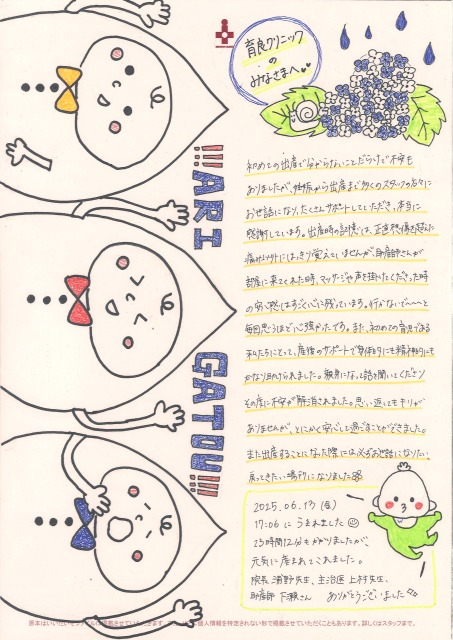 育良クリニック
の
みなさまへ
初めての出産で分からないことだらけで不安も
ありましたが、妊娠から出産まで多くのスタッフの方々に
お世話になり、たくさんサポートしていただき、本当に
感謝しています。出産時の記憶は、正直想像を超えた
痛み以外にはっきり覚えていませんが、助産師さんが
部屋に来てくれた時、マッサージや声を掛けてくださった時
の安心感はすごく心に残っています。行かないで〜〜と
毎回思うほど心強かったです。また、初めての育児である
私たちにとって、産後のサポートで身体的にも精神的にも
かなり助けられました。親身になって話を聞いてくださり
その度に不安が解消されました。思い返してもキリが
ありませんが、とにかく安心して過ごすことができました。
また出産することになった際には必ずお世話になりたい、
戻ってきたい場所になりました
!!!ARI
GATOU!!!
2025.06.13 (金)
17:06 に うまれました
23時間12分もかかりましたが、
元気に産まれてくれました。
院長 浦野先生、主治医 上村先生、
助産師 下瀬さん ありがとうございました
個人情報を特定されない形で掲載させていただくこともあります。詳しくはスタッフまで。